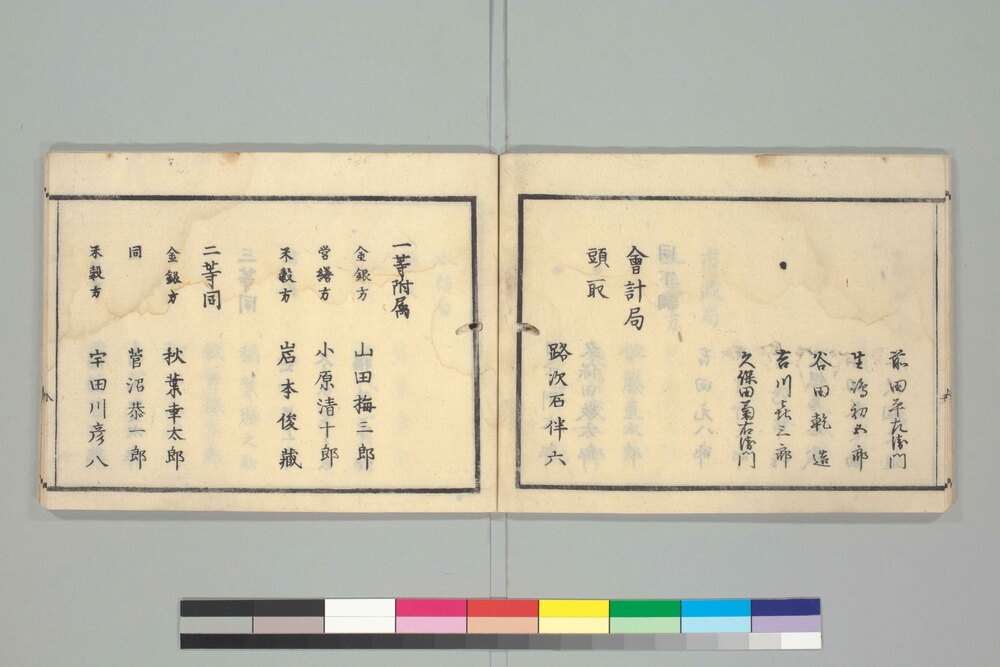 前田平左衛門
生嶋初五郎
谷田乾造
吉川喜三郎
久保田菊右衛門
會計局
頭取
路次石伴六
一等附属
金銀方
山田梅三郎
営繕方
小原清十郎
米穀方
岩本俊藏
二等同
金銀方
秋葉幸太郎
同
菅沼恭一郎
米穀方
宇田川彦八